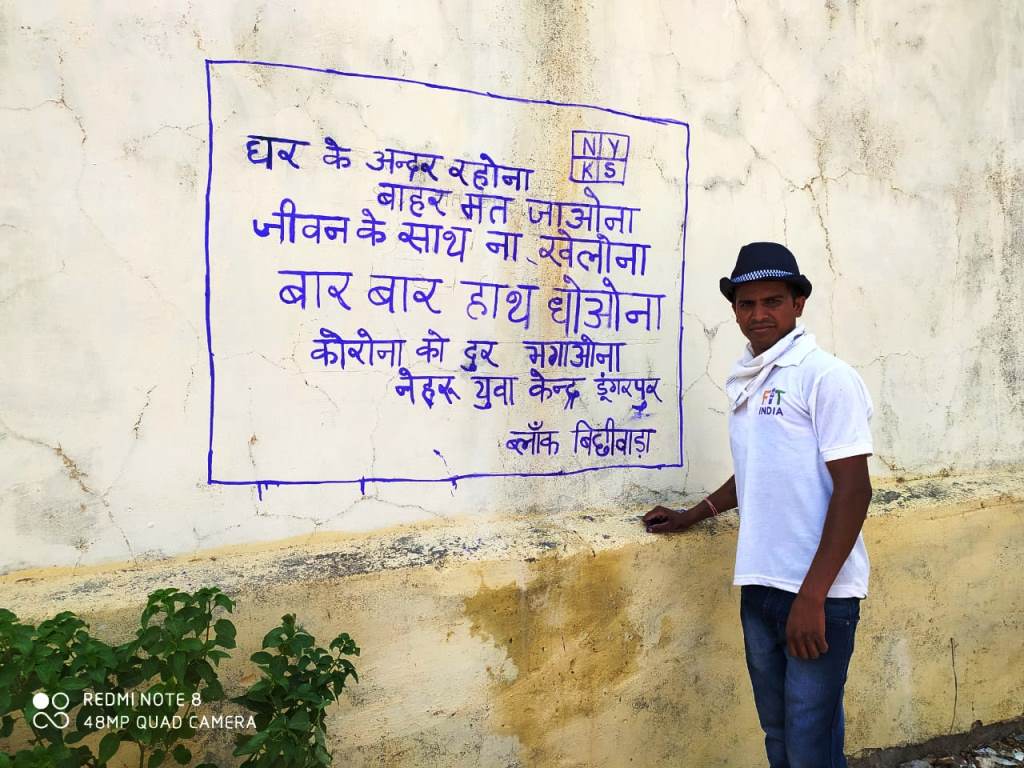 घर के अन्दर रहोना
NY
KS
बाहर मत जाओना
जीवन के साथ ना खेलोना
बार बार हाथ धोओना
कोरोना को दुर भगाओना
नेहरू युवा केन्द्र डूंगरपुर
ब्लॉक बिछीवाड़ा
FIT
INDIA
REDMI NOTE 8
48MP QUAD CAMERA